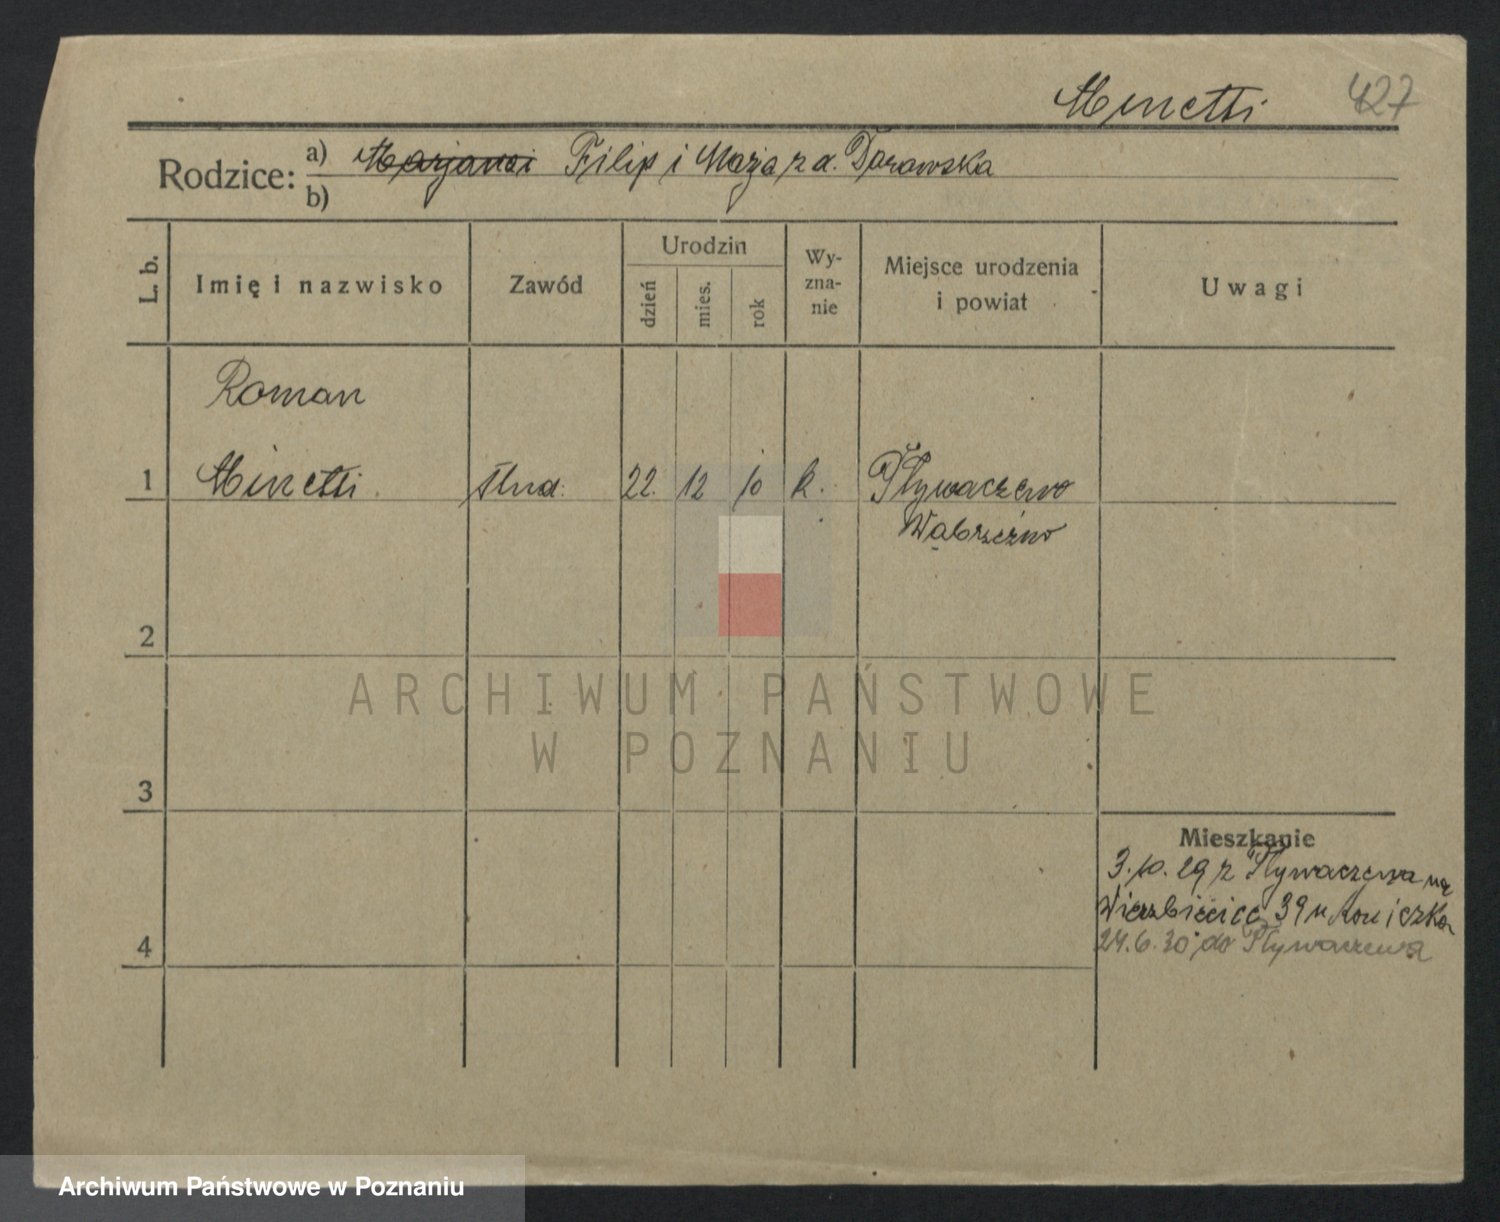 Minetti 427
Rodzice: a) Marjanna Filip i Marja z d. Darowska
b)
L. b. Imię i nazwisko Zawód Urodzin dzień mies. rok Wy-zna-nie Miejsce urodzenia i powiat Uwagi
Roman
1 Minetti. stud. 22. 12 10 k. Pływaczewo
Wąbrzeźno
2
ARCHIWUM PAŃSTWOWE
W POZNANIU
3
Mieszkanie
3.10.29 z Pływaczewa na
Wierzbięcice 39 u
4 24.6.30 do Pływaczewa
Archiwum Państwowe w Poznaniu